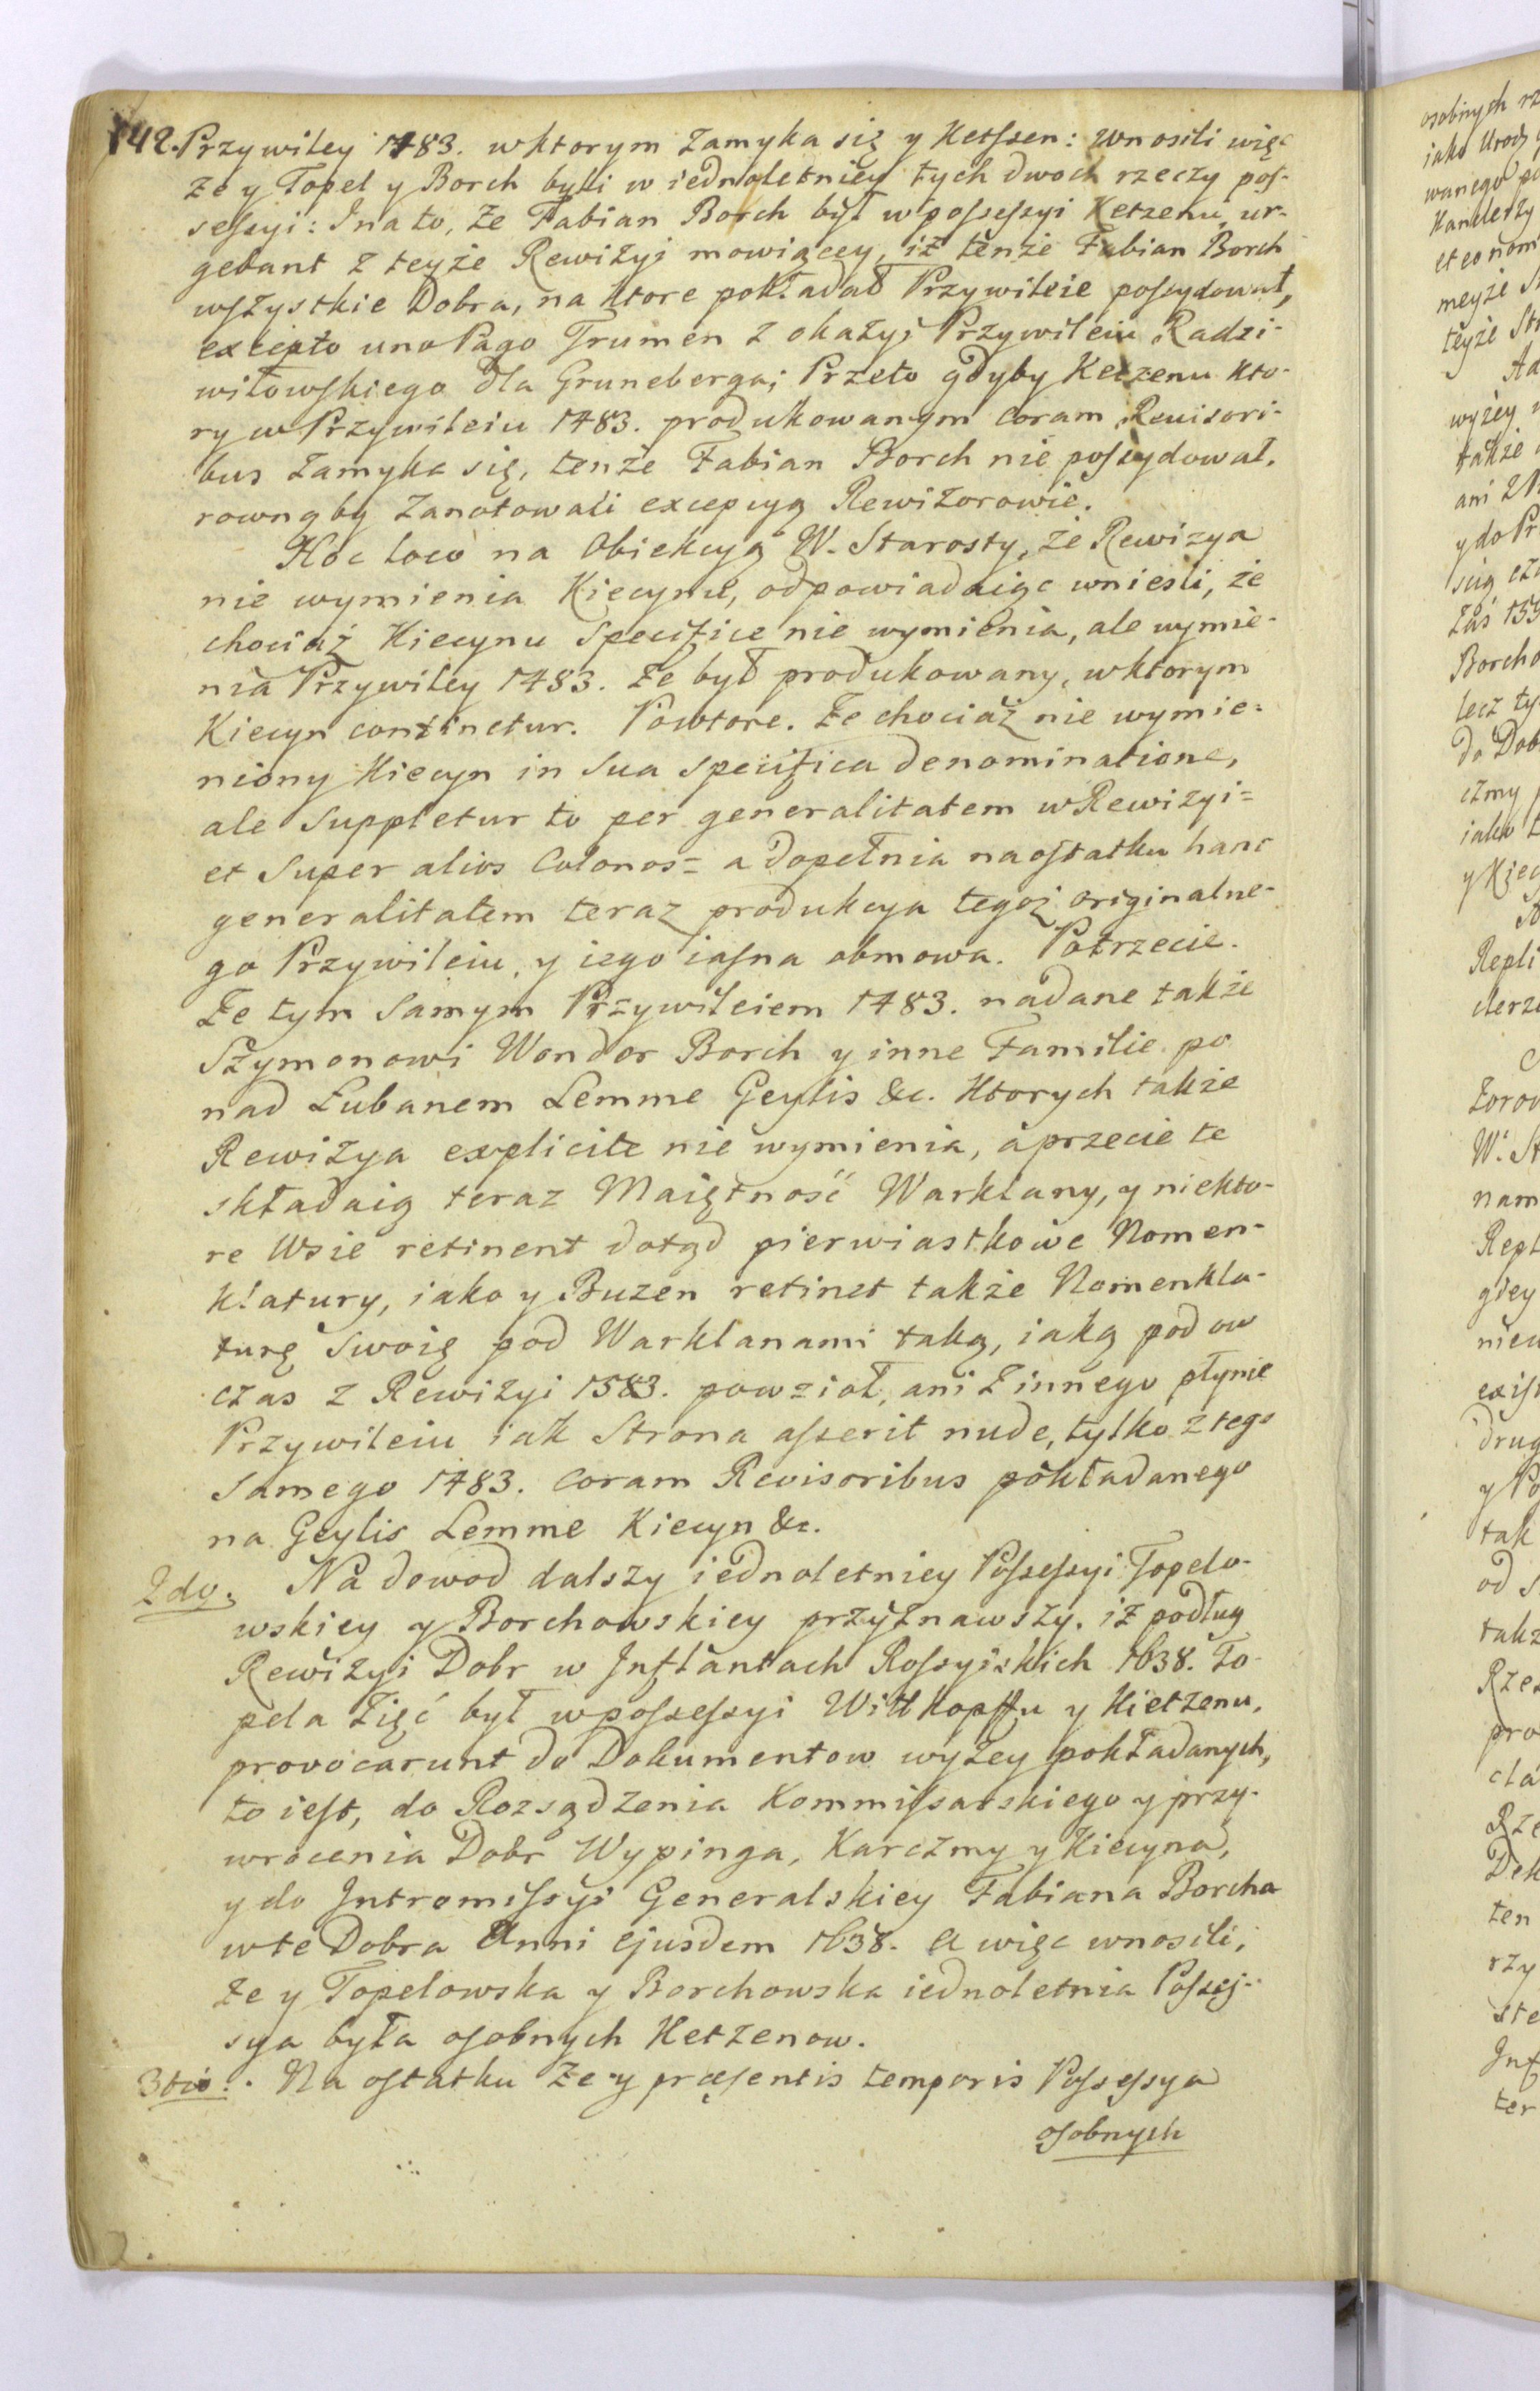 142. Przywiley 1483. wktorym zamyka się y Ketſsen: wnosili więc
że y Topel y Borch byli w iednoletniey tych dwoch rzeczy poſ-
seſsyi: Inato, że Fabian Borch był wpoſseſsyi Ketzenu, ur-
gebant z teyże Rewiżyi mowiącey, iż tenże Fabian Borch
wſzystkie Dobra, na ktore pokładał Przywileie poſsydował,
excepto uno Pago Trumen z okażyi Przywileiu Radzi-
wiłowſkiego dla Gruneberga; Przeto gdyby Ketzenu kto-
ry w Przywileiu 1483. produkowanym coram Revisori-
bus zamyka się, tenże Fabian Borch nie poſsydował,
rowną by zanotowali excepcyą Rewiżorowie.
Hoc loco na Obiekcyą W. Starosty, że Rewizya
nie wymienia Kiecynu, odpowiadaiąc wnieśli, że
chociaż Kiecynu Specifice nie wymienia, ale wymie-
nia Przywiley 1483. że był produkowany, wktorym
Kiecyn continetur. Powtore. Że chociaż nie wymie-
niony Kiecyn in Sua Specifica denominatione,
ale Suppletur to per generalitatem wRewizyi=
et Super alios Colonos= a dopełnia naoſtatku hanc
generalitatem teraz produkcya tegoż originalne-
go Przywileiu, y iego iaſna obmowa. Potrzecie.
Że tym Samym Przywileiem 1483. nadane także
Szymonowi Wondor Borch y inne Familie po
nad Łubanem Lemme Geylis &c. Ktorych także
Rewiżya explicite nie wymienia, a przecie te
składaią teraz Maiętność Warklany, y niekto-
re Wsie retinent dotąd pierwiastkowe Nomen-
klatury, iako y Buzen retinet także Nomenkla-
turę Swoię pod Warklanami taką, iaką pod ow
czas z Rewiżyi 1583. powziął, ani z innego płynie
Przywileiu iak Strona aſserit nude, tylko z tego
Samego 1483. Coram Revisoribus pokładanego
na Geylis Lemme Kiecyn &c.
2do. Na dowod dalszy iednoletniey Poſseſsyi Topelo-
wskiey y Borchowskiey przyżnawszy, iż podług
Rewiżyi Dobr w Inflantach Roſsyiskich 1638. To-
pela Zięć był wpoſseſsyi Witkopffu y Kietzenu,
provocarunt do Dokumentow wyżey pokładanych,
to ieſt, do Rozsądzenia Kommiſsarskiego y przy-
wrocenia Dobr Wypinga, Karczmy y Kiecyna,
y do Intromiſsyi Generalskiey Fabiana Borcha
wte Dobra Anni ejusdem 1638. A więc wnosili,
że y Topelowska y Borchowska iednoletnia Poſseſ-
sya była oſobnych Ketzenow.
3tio. Na oſtatku że y præſentis temporis Poſseſsya
oſobnych